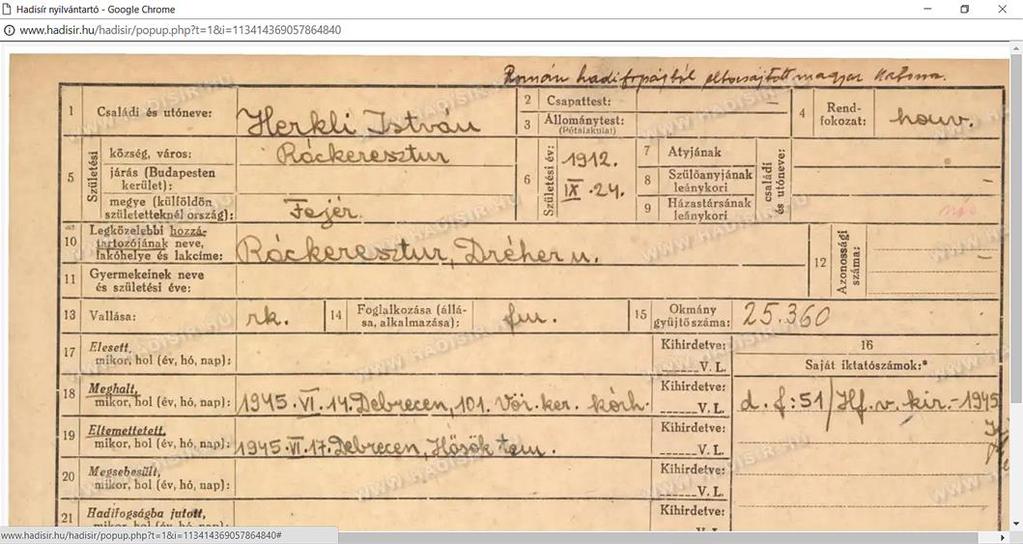 Hadisír nyilvántartó - Google Chrome
www.hadisir.hu/hadisir/popup.php?t=1&i=113414369057864840
Román hadifogságból magyar katona.
1 Családi és utóneve: Herkli István
2 Csapattest: —
3 Állománytest: (Pótalakulat)
4 Rendfokozat: honv.
5 Születési
község, város: Ráckeresztur
járás (Budapesten kerület):
megye (külföldön születetteknél ország): Fejér.
6 Születési év: 1912. IX. 24.
7 Atyjának
8 Szülőanyjának leánykori
9 Házastársának leánykori
családi és utóneve:
10 Legközelebbi hozzátartozójának neve, lakóhelye és lakcíme: Ráckeresztur, Dréher u.
11 Gyermekeinek neve és születési éve:
12 Azonossági száma:
13 Vallása: rk.
14 Foglalkozása (állása, alkalmazása): fm.
15 Okmány gyüjtőszáma: 25.360
16 Saját iktatószámok:*
17 Elesett, mikor, hol (év, hó, nap):
Kihirdetve:
V. L.
18 Meghalt, mikor, hol (év, hó, nap): 1945. VI. 14. Debrecen, 101. Vör. ker. kórh.
Kihirdetve:
V. L.
d. f: 51/Hf. v. kir. - 1945
19 Eltemettetett, mikor, hol (év, hó, nap): 1945. VI. 17. Debrecen, Hősök tem.
Kihirdetve:
V. L.
20 Megsebesült, mikor, hol (év, hó, nap):
Kihirdetve:
V. L.
21 Hadifogságba jutott, mikor, hol (év, hó, nap):
Kihirdetve:
V. L.
WWW.HADISIR.HU
www.hadisir.hu/hadisir/popup.php?t=1&i=113414369057864840#